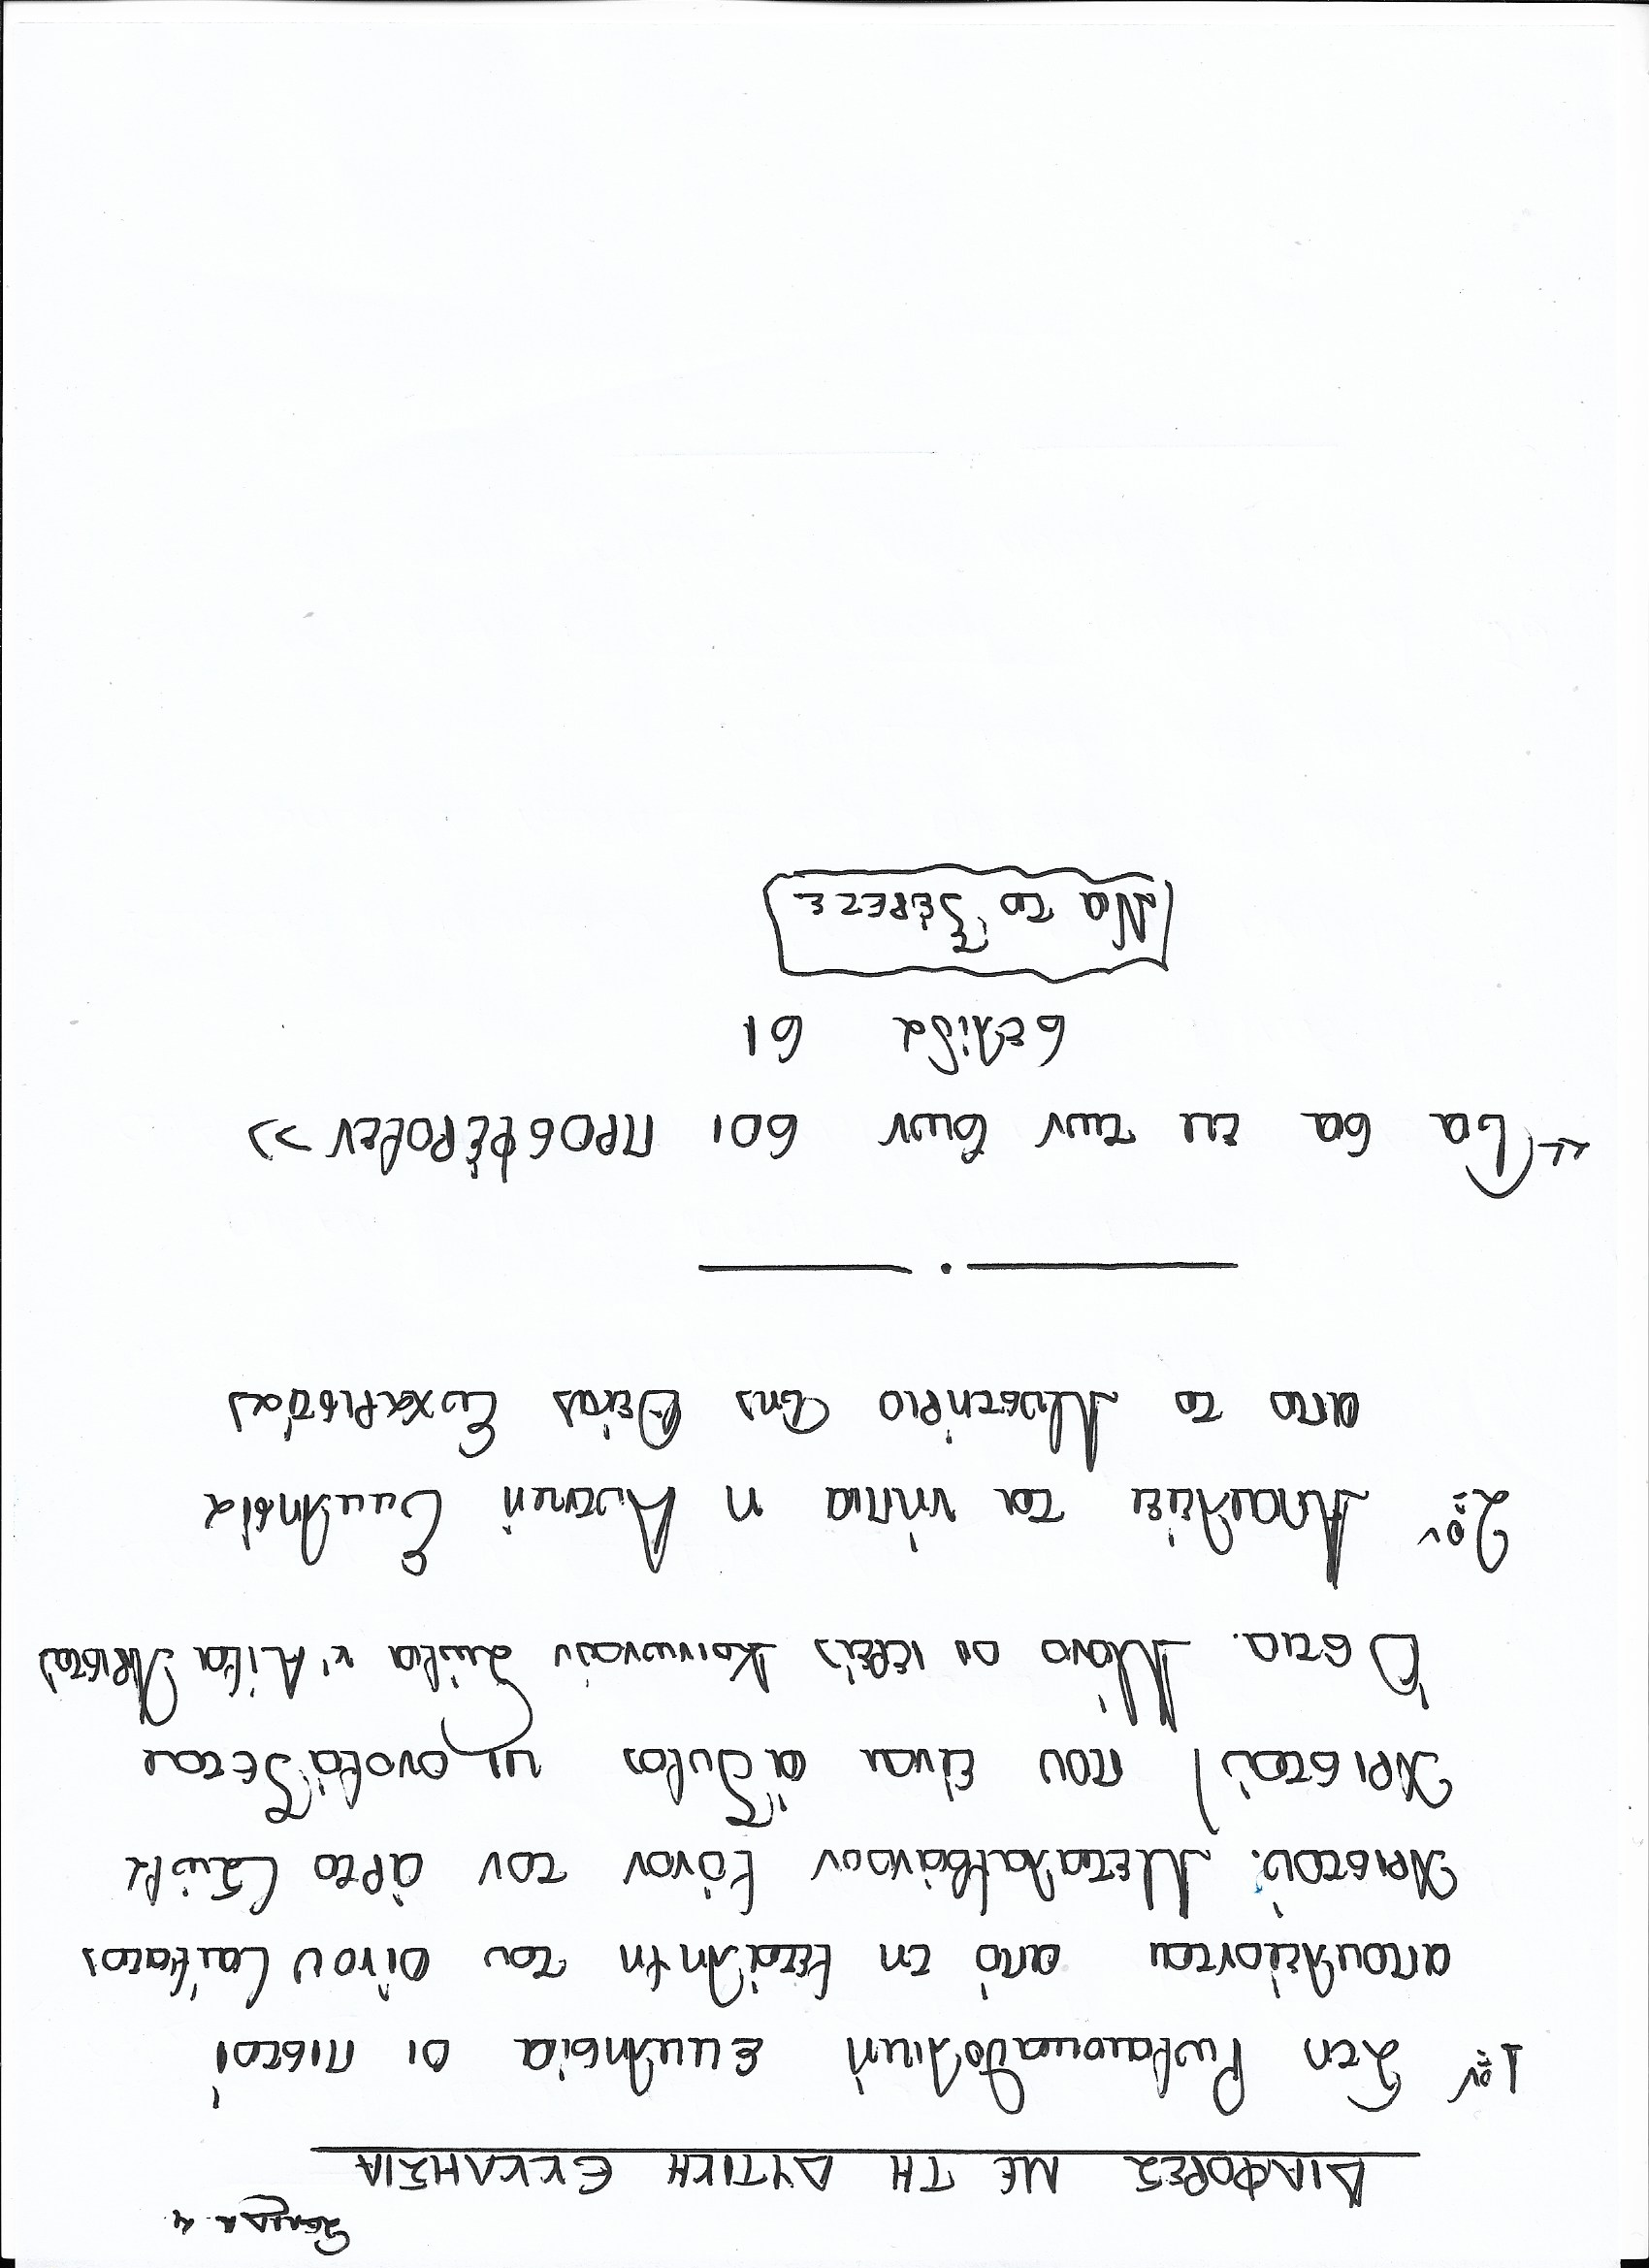 Σελίδα 4
ΔΙΑΦΟΡΕΣ ΜΕ ΤΗ ΔΥΤΙΚΗ ΕΚΚΛΗΣΙΑ
1ον Στη Ρωμαιοκαθολική εκκλησία οι πιστοί
αποκλείονται από τη μετάληψη του οίνου (αίματος
Χριστού). Μεταλαμβάνουν μόνον τον άρτο (Σώμα
Χριστού) που είναι άζυμος κι ονομάζεται
Όστια. Μόνο οι ιερείς κοινωνούν Σώμα κ' Αίμα Χριστού
2ον Αποκλείει τα νήπια η Δυτική Εκκλησία
απο το Μυστήριο της Θείας Ευχαριστίας
«Τα σα εκ των σων σοι προσφέρομεν»
σελίδα 61
Να το ξέρετε